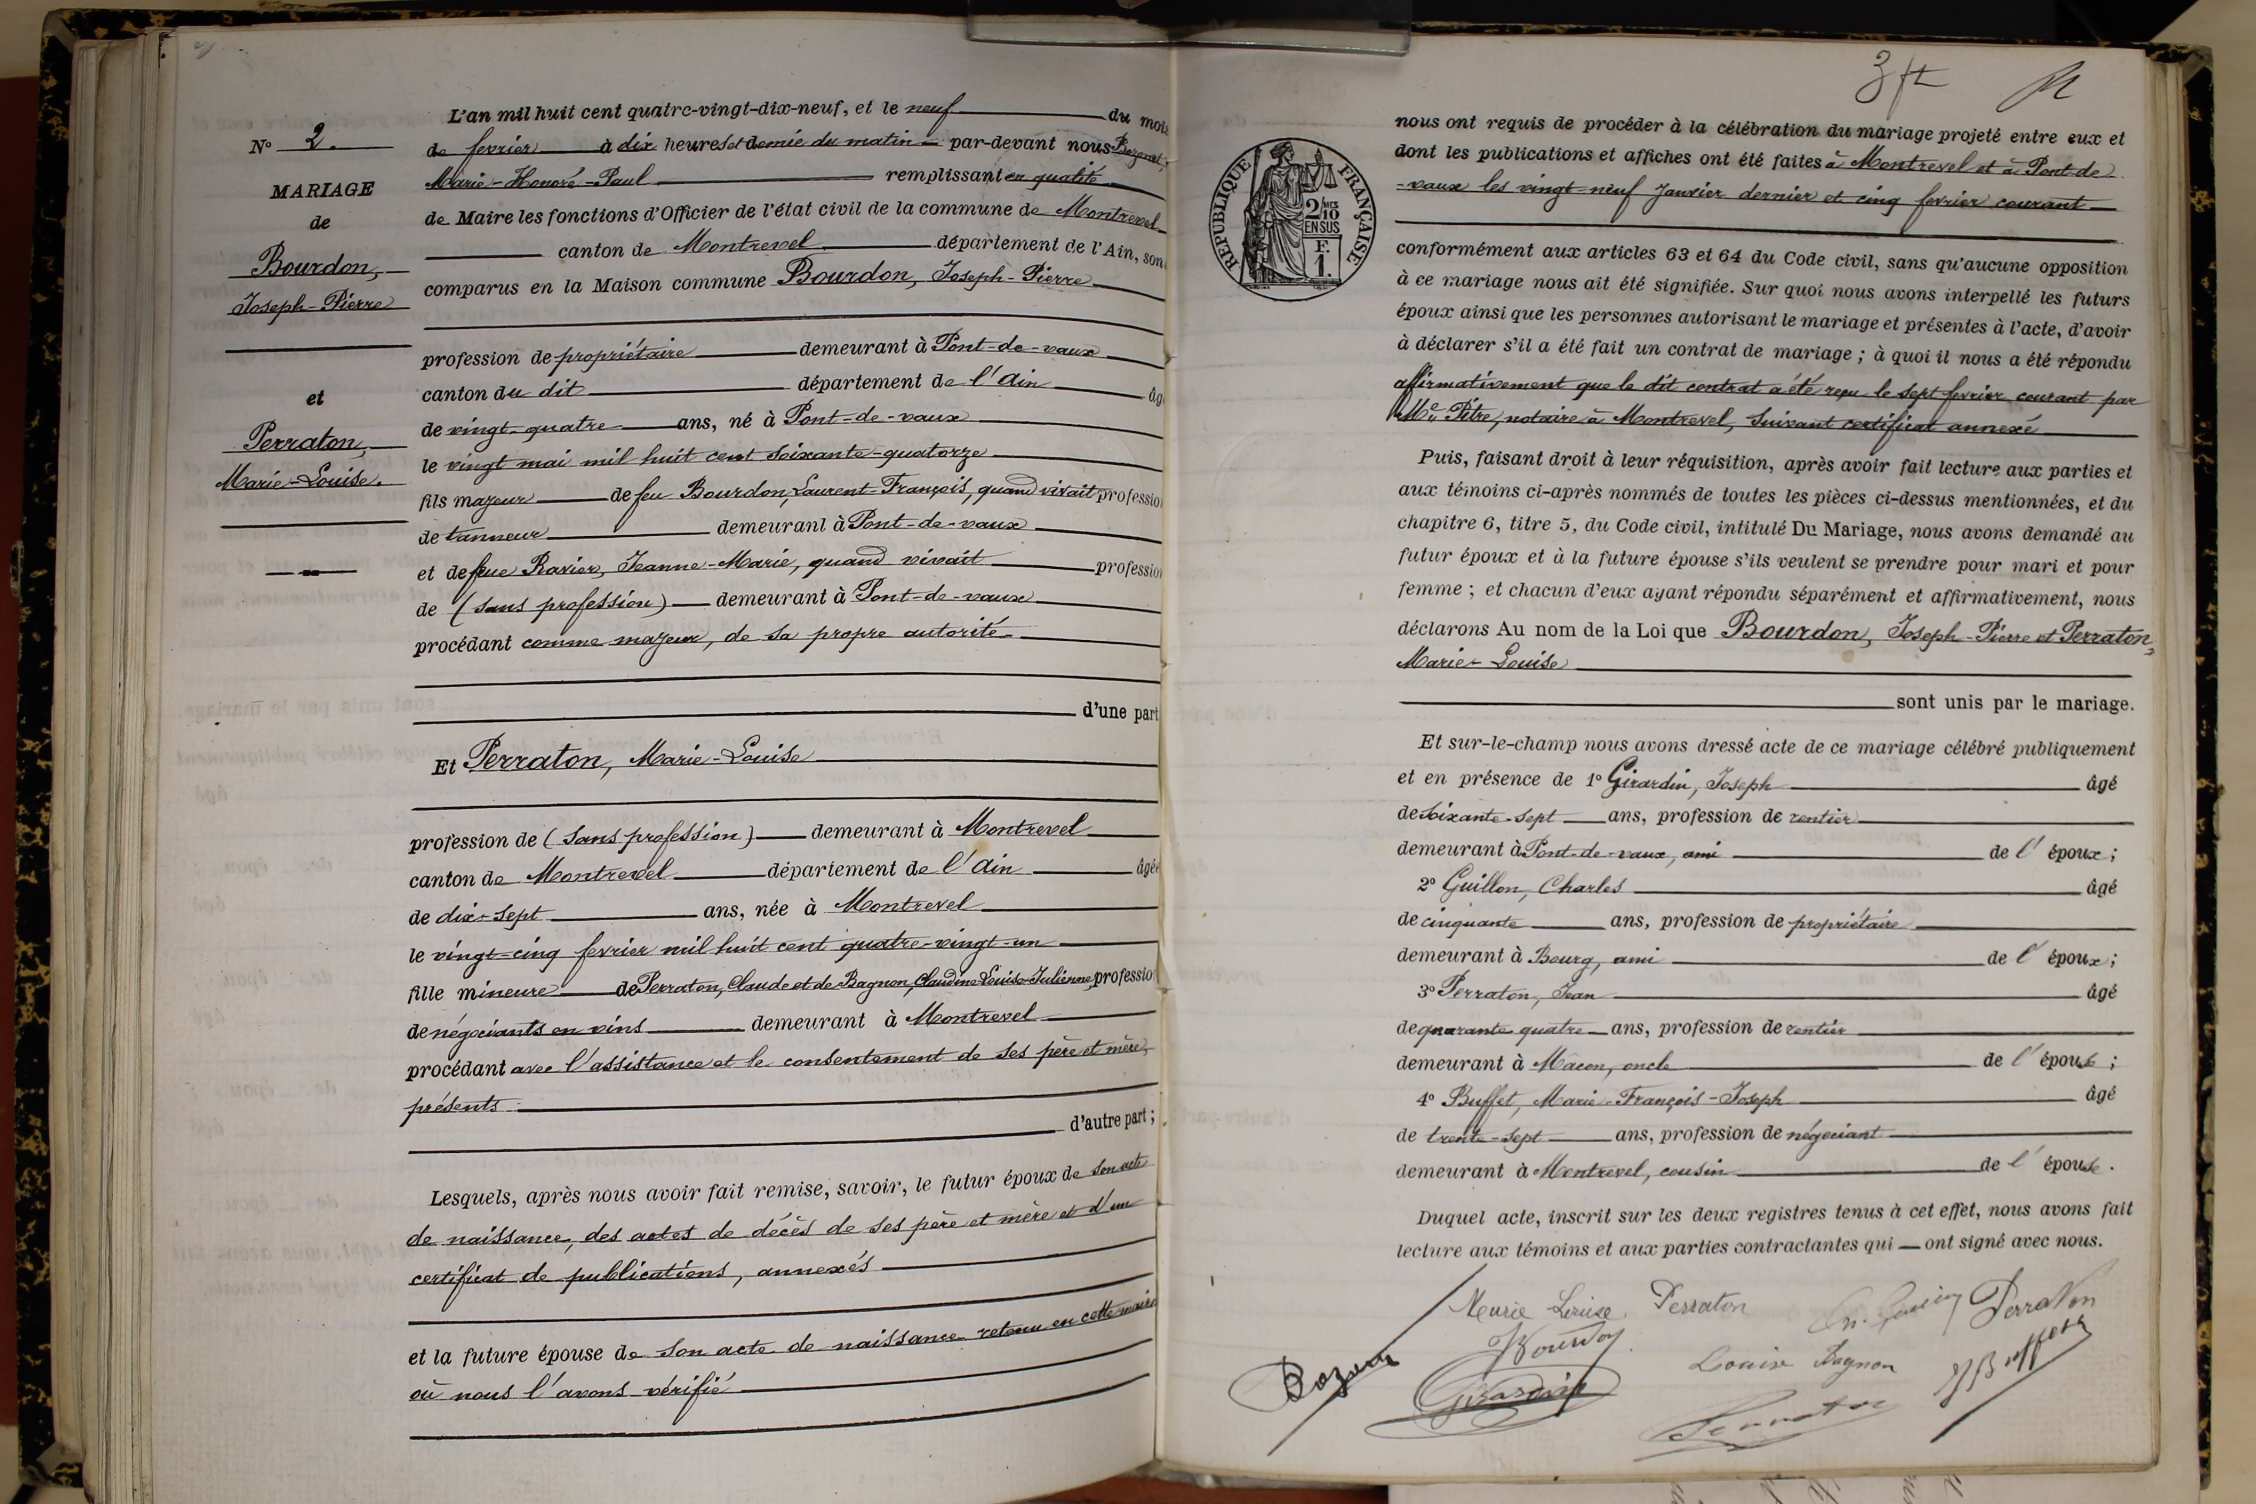 L'an mil huit cent quatre-vingt-dix-neuf, et le neuf du mois
N° 2.
de fevrier à dix heures et demie du matin par-devant nous
Marie-Honoré-Paul remplissant en qualité
MARIAGE
de Maire les fonctions d'Officier de l'état civil de la commune de Montrevel
de
canton de Montrevel département de l'Ain, son
Bourdon,
comparus en la Maison commune Bourdon, Joseph-Pierre
Joseph-Pierre
profession de propriétaire demeurant à Pont-de-vaux
canton du dit département de l'Ain âg
et
de vingt-quatre ans, né à Pont-de-vaux
Perraton,
le vingt mai mil huit cent soixante-quatorze
Marie-Louise.
fils majeur de feu Bourdon, Laurent-François, quand vivait profession
de tanneur demeurant à Pont-de-vaux
et de feue Ravier, Jeanne-Marie, quand vivait profession
de (sans profession) demeurant à Pont-de-vaux
procédant comme majeur, de sa propre autorité
d'une part
Et Perraton, Marie-Louise
profession de (sans profession) demeurant à Montrevel
canton de Montrevel département de l'Ain âgée
de dix-sept ans, née à Montrevel
le vingt-cinq fevrier mil huit cent quatre-vingt-un
fille mineure de Perraton, Claude et de Bagnon, Claudine Louise Julienne, profession
de négociants en vins demeurant à Montrevel
procédant avec l'assistance et le consentement de ses père et mère,
présents
d'autre part ;
Lesquels, après nous avoir fait remise, savoir, le futur époux de son acte
de naissance, des actes de décès de ses père et mère et d'un
certificat de publications, annexés
et la future épouse de son acte de naissance retenu en cette mairie
où nous l'avons vérifié
3 ft
nous ont requis de procéder à la célébration du mariage projeté entre eux et
dont les publications et affiches ont été faites à Montrevel et à Pont-de
-vaux les vingt-neuf Janvier dernier et cinq fevrier courant
RÉPUBLIQUE FRANÇAISE
2/10 MES
EN SUS
F.
1.
conformément aux articles 63 et 64 du Code civil, sans qu'aucune opposition
à ce mariage nous ait été signifiée. Sur quoi nous avons interpellé les futurs
époux ainsi que les personnes autorisant le mariage et présentes à l'acte, d'avoir
à déclarer s'il a été fait un contrat de mariage ; à quoi il nous a été répondu
affirmativement que le dit contrat a été reçu le sept fevrier courant par
Me Pitre, notaire à Montrevel, suivant certificat annexé
Puis, faisant droit à leur réquisition, après avoir fait lecture aux parties et
aux témoins ci-après nommés de toutes les pièces ci-dessus mentionnées, et du
chapitre 6, titre 5, du Code civil, intitulé Du Mariage, nous avons demandé au
futur époux et à la future épouse s'ils veulent se prendre pour mari et pour
femme ; et chacun d'eux ayant répondu séparément et affirmativement, nous
déclarons Au nom de la Loi que Bourdon, Joseph-Pierre et Perraton,
Marie-Louise
sont unis par le mariage.
Et sur-le-champ nous avons dressé acte de ce mariage célébré publiquement
et en présence de 1° Girardin, Joseph âgé
de soixante-sept ans, profession de rentier
demeurant à Pont-de-vaux, ami de l'époux ;
2° Guillon, Charles âgé
de cinquante ans, profession de propriétaire
demeurant à Bourg, ami de l'époux ;
3° Perraton, Jean âgé
de quarante quatre ans, profession de rentier
demeurant à Macon, oncle de l'épouse ;
4° Buffet, Marie-François-Joseph âgé
de trente-sept ans, profession de négociant
demeurant à Montrevel, cousin de l'épouse.
Duquel acte, inscrit sur les deux registres tenus à cet effet, nous avons fait
lecture aux témoins et aux parties contractantes qui ont signé avec nous.
Marie Louise Perraton Perraton
JBourdon
Louise Bagnon
Girardin
Perraton